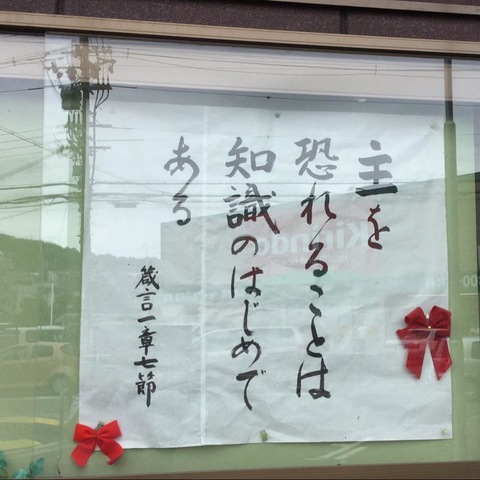 主を
恐れることは
知識のはじめで
ある
箴言一章七節